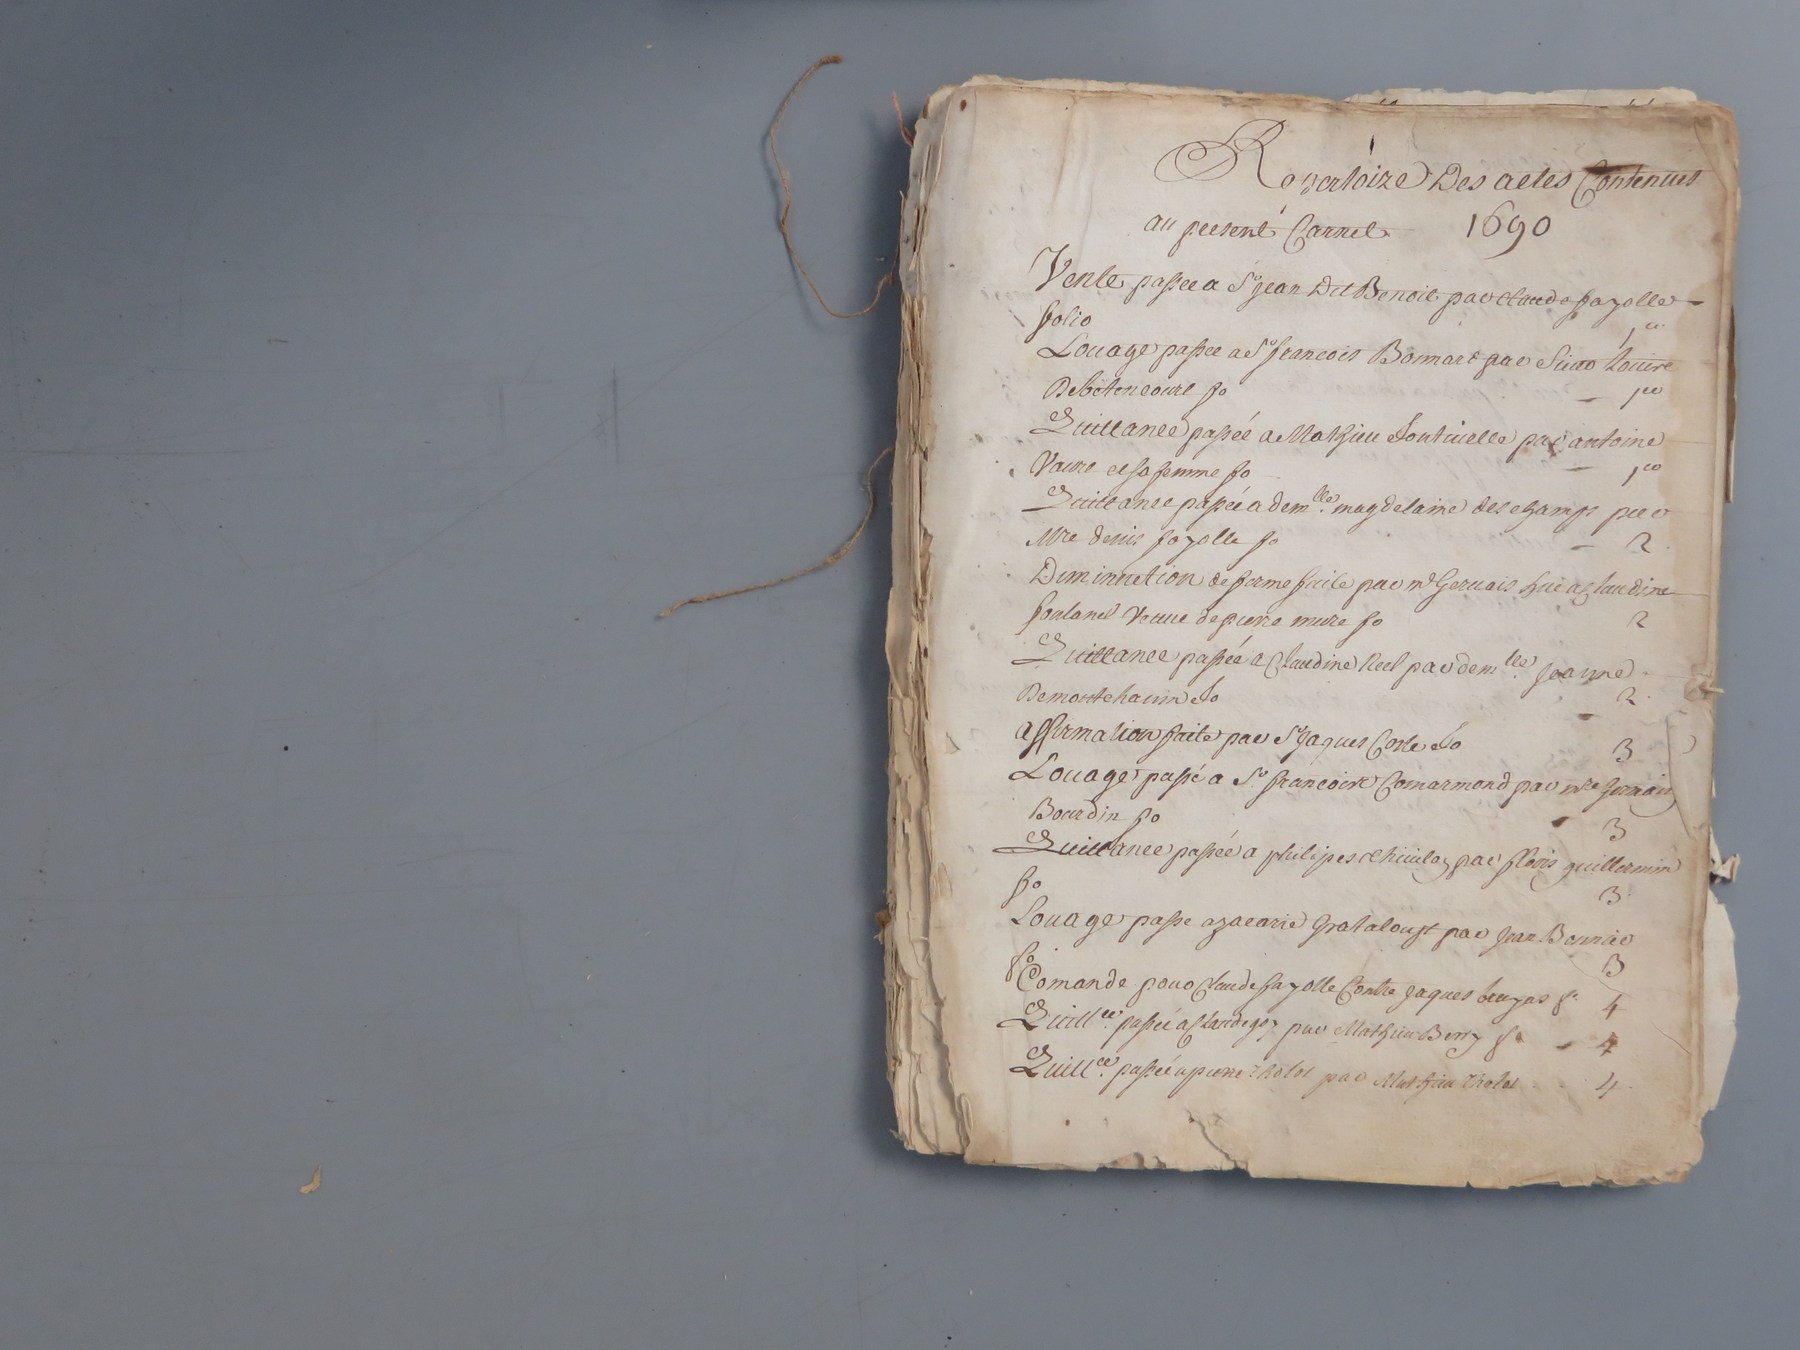 Repertoire Des actes Contenues
au present Carnet 1690
Vente passée a Sr jean Dit Benoit par claude fayolle
folio 1er
Louage passée a Sr francois Bonnart par
fo 1er
Quittance passée a Mathieu par antoine
et sa femme fo 1er
Quittance passée a demlle magdelaine deschamps par
Mre denis fayolle fo 2
Diminution de ferme faite par mr Gervais a claudine
Veuve de pierre mure fo 2
Quittance passée a Claudine par demlle jeanne
fo 2
affirmation faite par Sr jaques Coste fo 3
Louage passé a Sr francoise Comarmond par mre
Bourdin fo 3
Quittance passée a philipes par guillermin
fo 3
Louage passe a zacarie Grataloup par jean Bonnier
fo 3
Comande pour Claude fayolle Contre jaques bruyas fo 4
Quittce passée a Claude par Mathieu Berry fo 4
Quittce passée a pierre par Mathieu 4